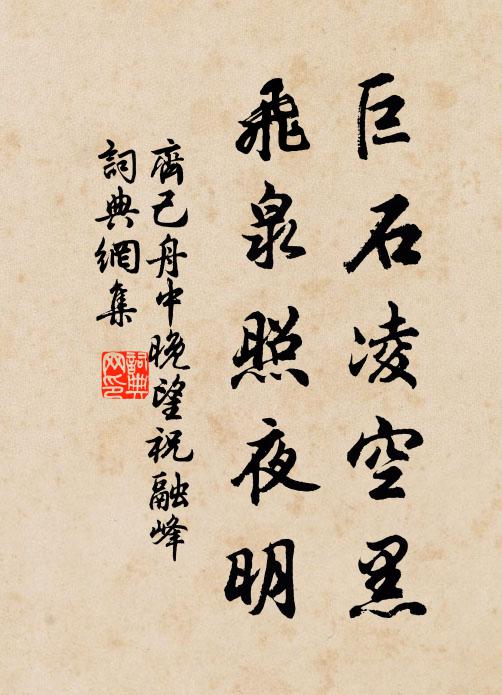 巨石凌空黑
飛泉照夜明
齊己舟中晚望祝融峰
詞典網集
詞典网印